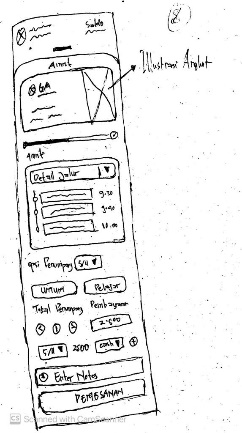 8.
Saldo
Armt
Illustrasi Angkot
Armt
Detail Jalur
9.30
9.40
10.00
opsi Penumpang S/U
Umum Pelajar
Total Penumpang Pembayaran
1 2.500
S/U 2500 cash
Enter Notes
PEMESANAN
CS Scanned with CamScanner